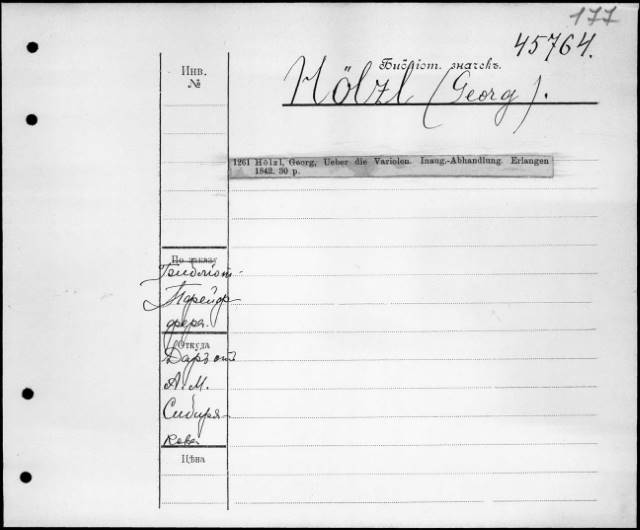 177
45764.
Библіот. значекъ.
Hölzl (Georg).
Инв.
№
1261 Hölzl, Georg, Ueber die Variolen. Inaug.-Abhandlung. Erlangen
1842. 30 p.
По заказу
Библіот.
Пфейф-
фера.
Откуда
Даръ отъ
А. М.
Сибиря-
кова
Цѣна